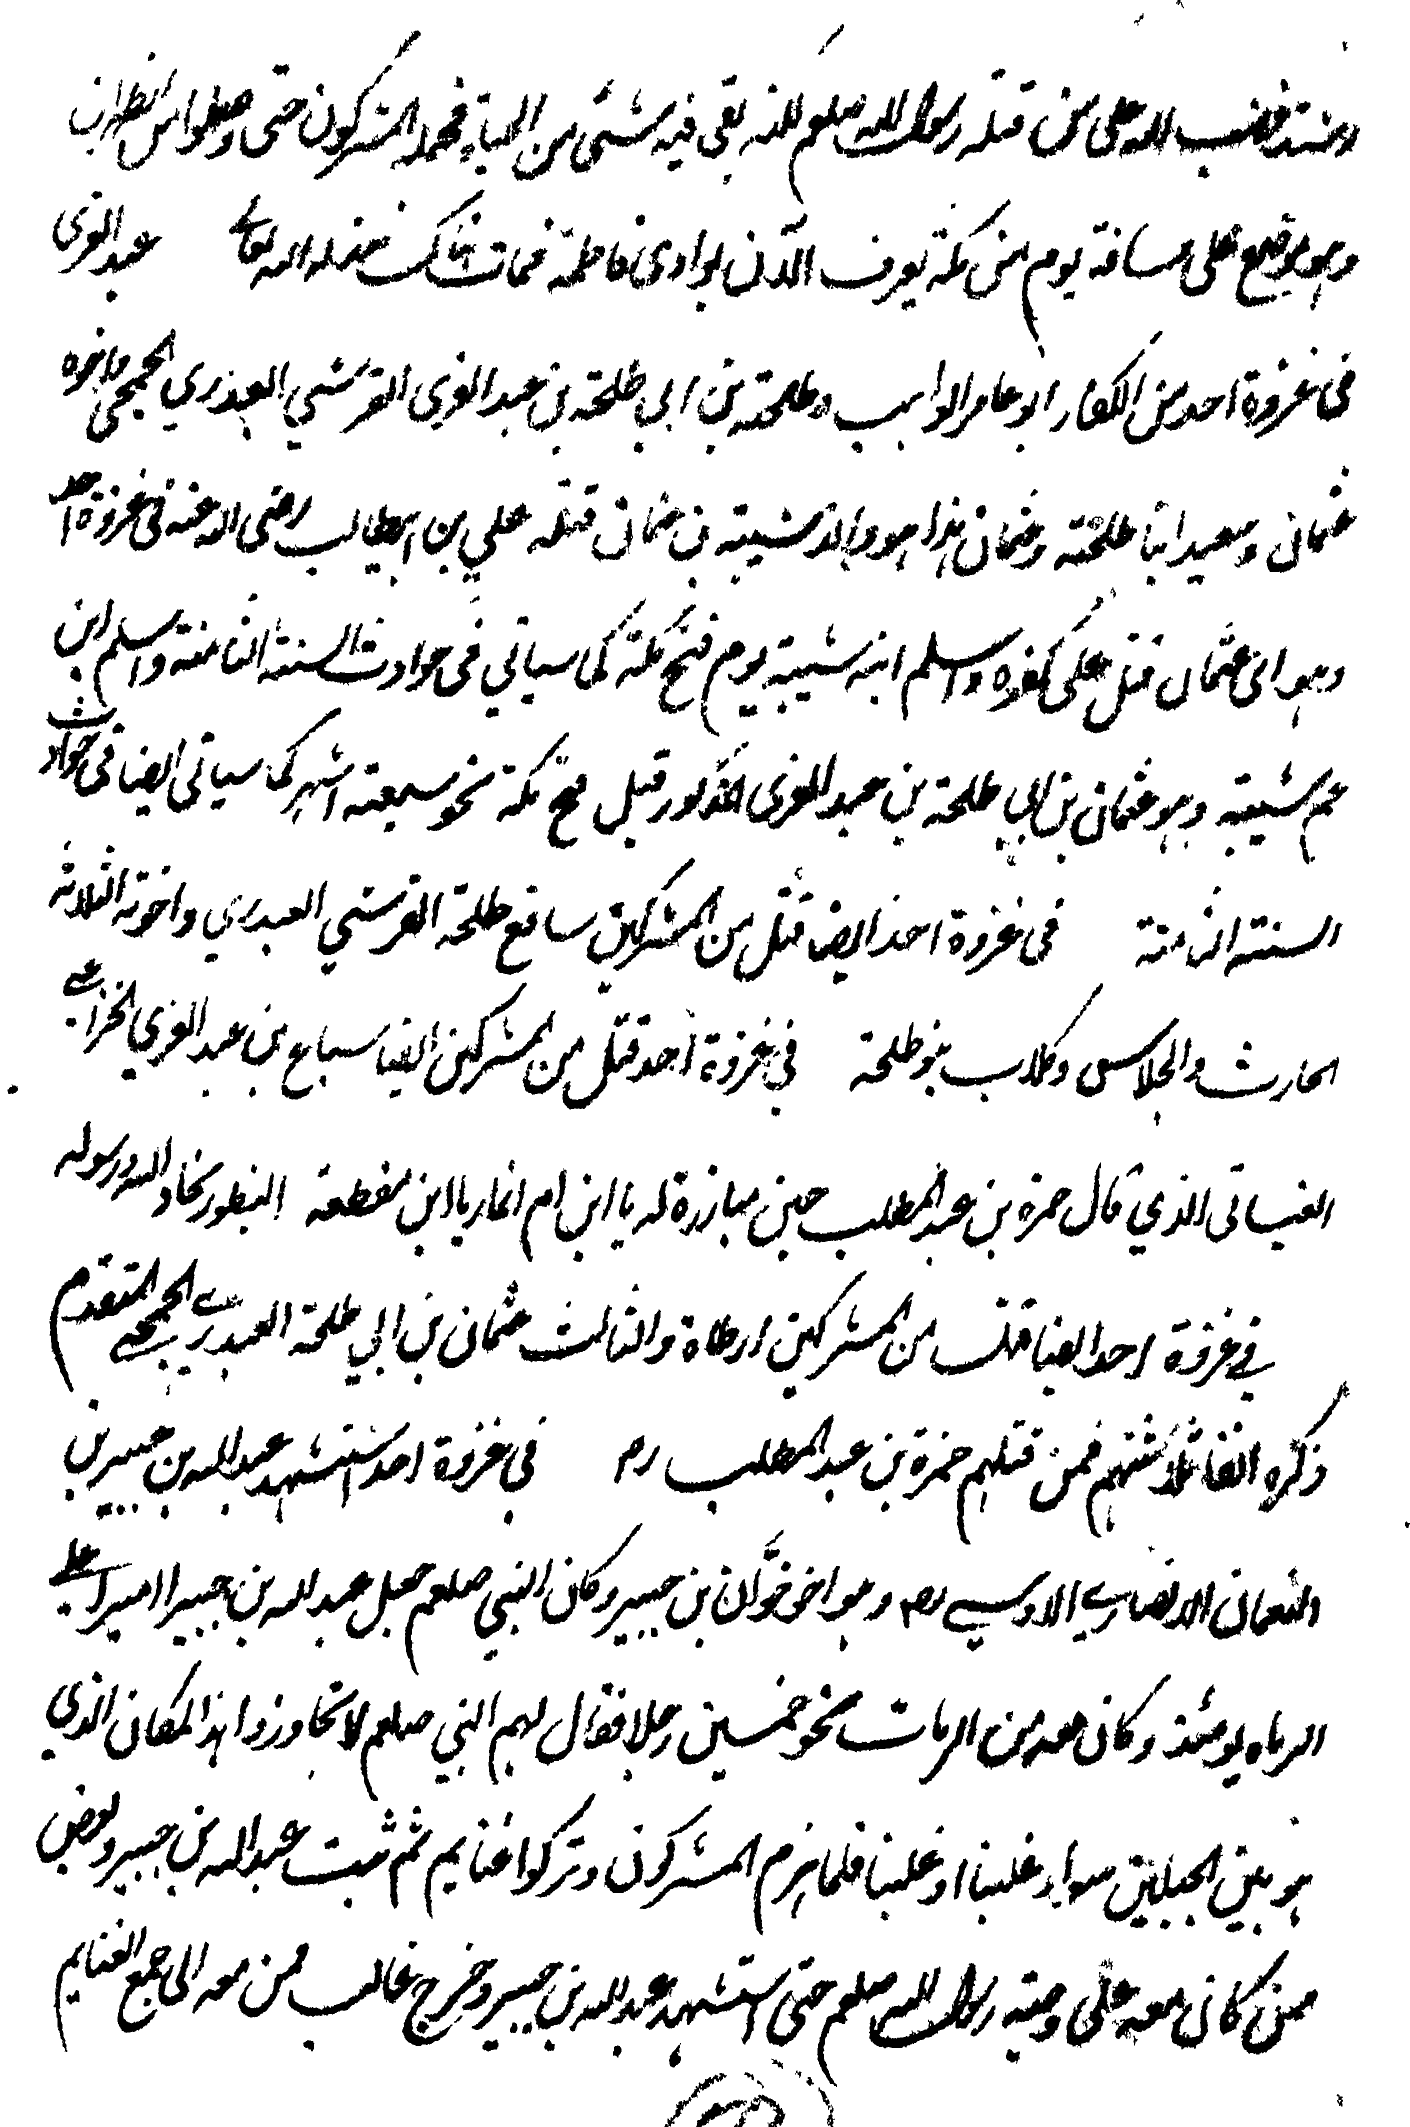 واشتد غضب الله على من قتله رسول الله صلعم لكنه بقى فيه شئ من الحياة فحمله المشركون حتى وصلوا مر الظهران
وهو موضع على مسافة يوم من مكة يعرف الآن بوادى فاطمة فمات هناك خذله الله تعالى عبد العزى
فى غزوة احد من الكفار ابو عامر الراهب وطلحة بن ابي طلحة بن عبد العزى القرشي العبدري الحجبي واخوه
عثمان وسعيد ابنا طلحة وعثمان هذا هو والد شيبة بن عثمان قتله علي بن ابيطالب رضى الله عنه فى غزوة احد
وهو اى عثمان قتل على كفره واسلم ابنه شيبة يوم فتح مكة كما سياتي فى حوادث السنة الثامنة واسلم ابن
عم شيبة وهو عثمان بن ابي طلحة بن عبد العزى المذكور قبل فتح مكة نحو سبعة اشهر كما سياتى ايضا فى حوادث
السنة الثامنة فى غزوة احد ايضا قتل من المشركين مسافع طلحة القرشي العبدري واخوته الثلاثة
الحارث والجلاس وكلاب بنو طلحة في غزوة احد قتل من المشركين ايضا سباع بن عبد العزي الخزاعي
الغبساني الذي قال حمزة بن عبد المطلب حين مبارزة له يا ابن ام انمار يا ابن مقطعة البظور تحاد الله ورسوله
في غزوة احد ايضا قتل من المشركين ارطاة والثالث عثمان بن ابي طلحة العبدري الحجبي المتقدم
ذكره انفا ثلاثتهم فمن قتلهم حمزة بن عبد المطلب رض في غزوة احد استشهد عبد الله بن جبير بن
النعمان الانصاري الاوسي رض وهو اخو خوّات بن جبير وكان النبي صلعم جعل عبد الله بن جبير اميرا على
الرماه يومئذ وكان معه من الرمات نحو خمسين رجلا فقال لهم النبي صلعم لا تجاوزوا هذا المكان الذي
هو بين الجبلين سواء غلبنا او غلبنا فلما انهزم المشركون وتركوا غنايم ثم ثبت عبد الله بن جبير وبعض
من كان معه على وصية رسول الله صلعم حتى استشهد عبد الله بن جبير وخرج غالب من معه الى جمع الغنايم